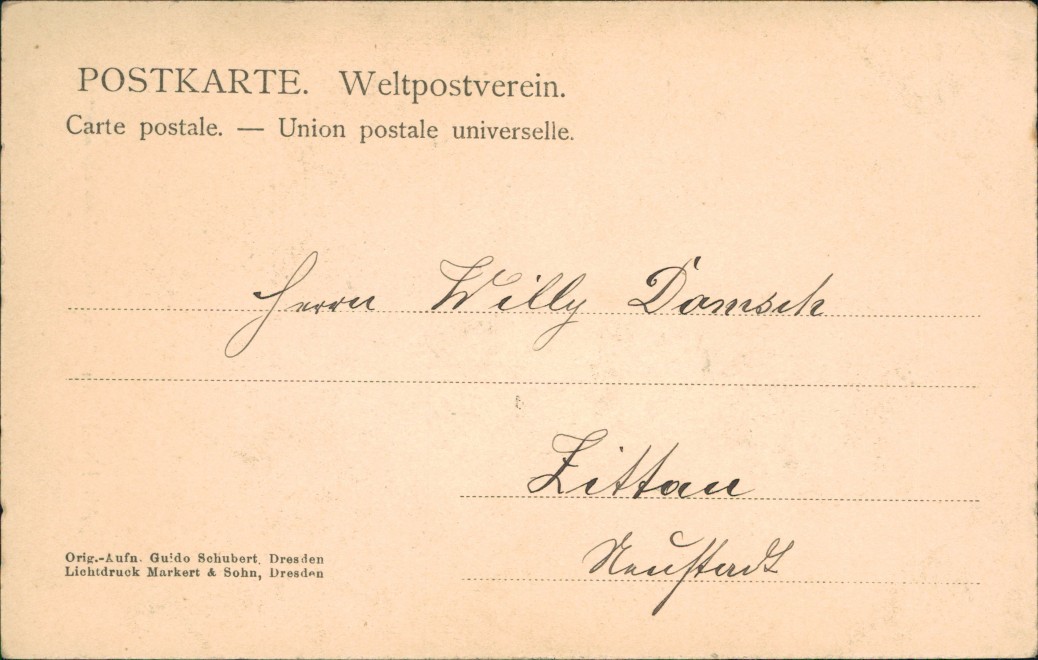 POSTKARTE. Weltpostverein.
Carte postale. — Union postale universelle.
Herrn Willy Domsch
Zittau
Neustadt
Orig.-Aufn. Guido Schubert, Dresden
Lichtdruck Markert & Sohn, Dresden